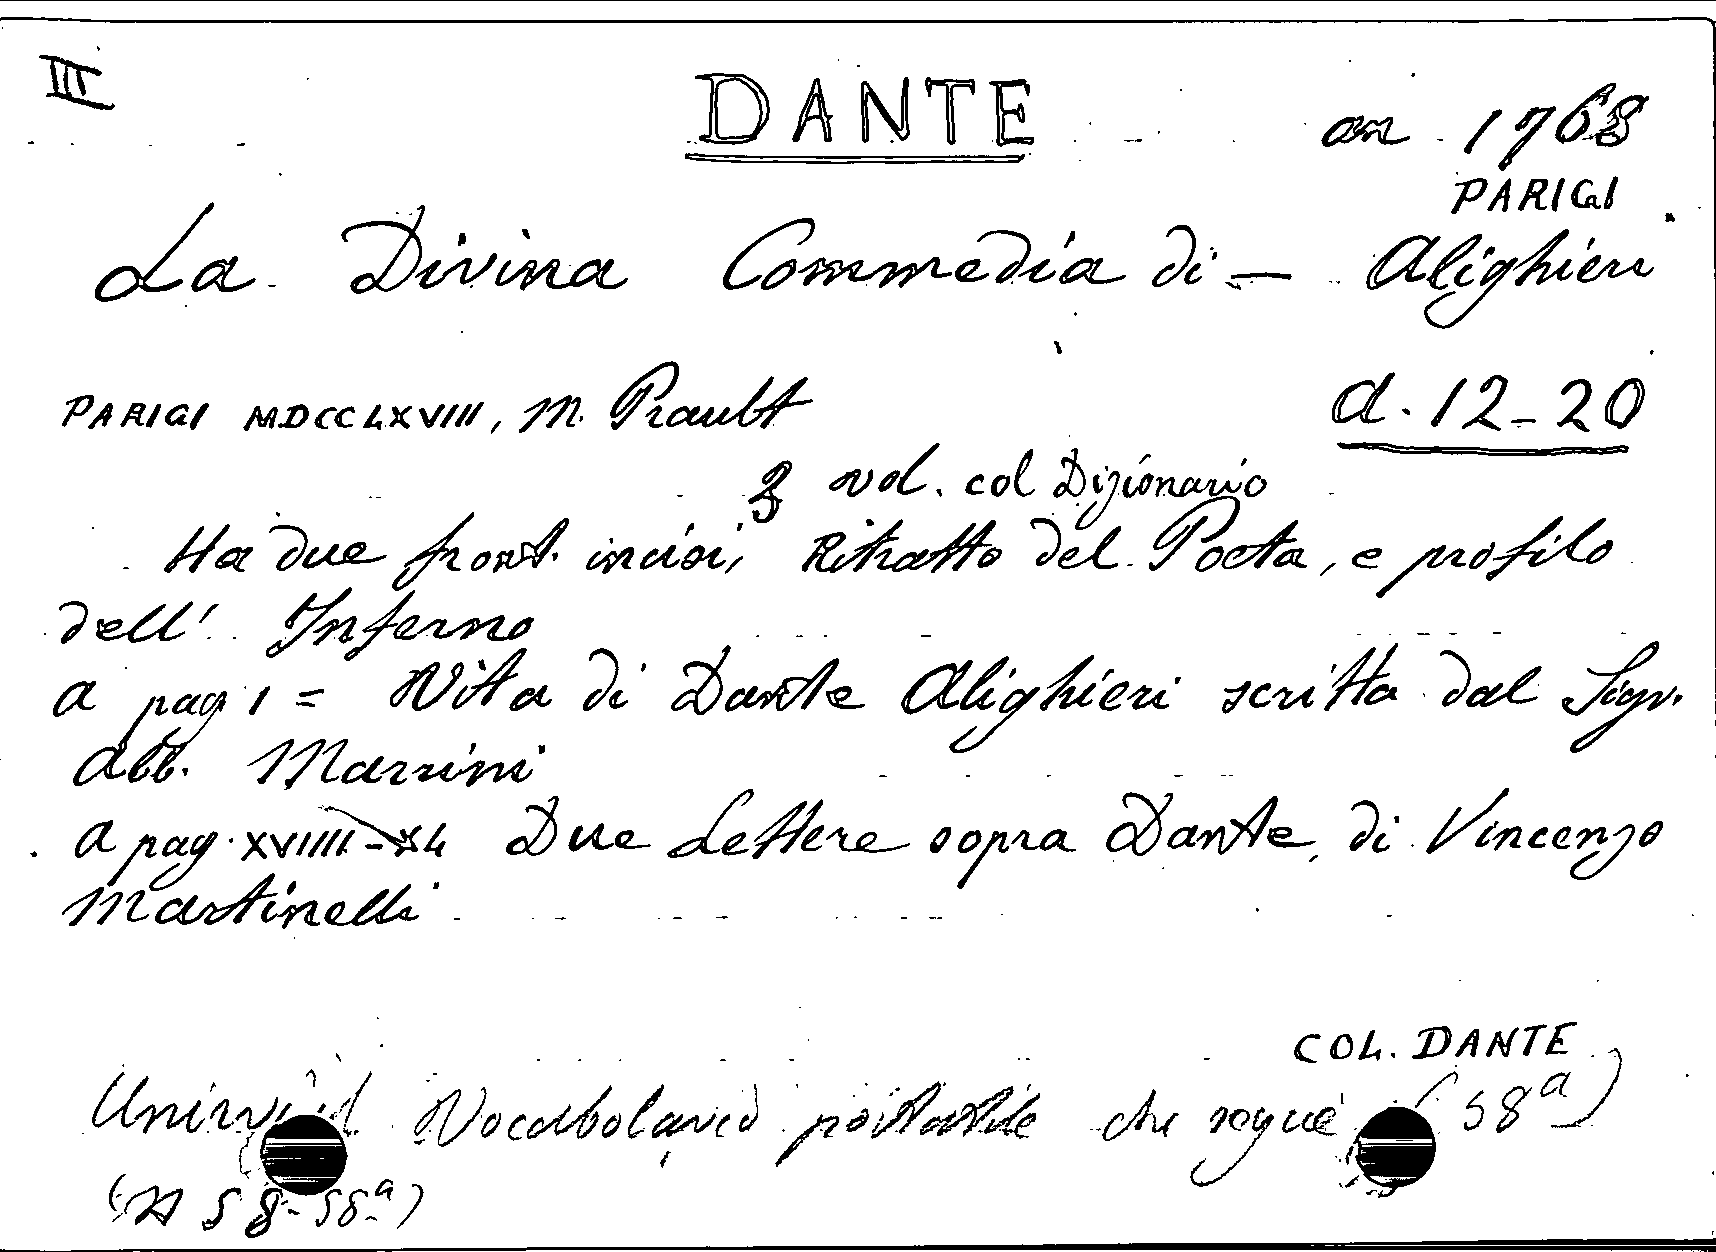 III
DANTE
an 1768
PARIGI
La Divina Commedia di — Alighieri
PARIGI MDCCLXVIII, M. Prault
d. 12-20
3 vol. col Dizionario
Ha due front. incisi, Ritratto del Poeta, e profilo
dell' Inferno
a pag 1 = Vita di Dante Alighieri scritta dal Sigr.
Abb. Marrini
a pag. XVIIII - XL Due Lettere sopra Dante, di Vincenzo
Martinelli
COL. DANTE
Vocabolario portatile che segue (58a)
(N 58-58a)